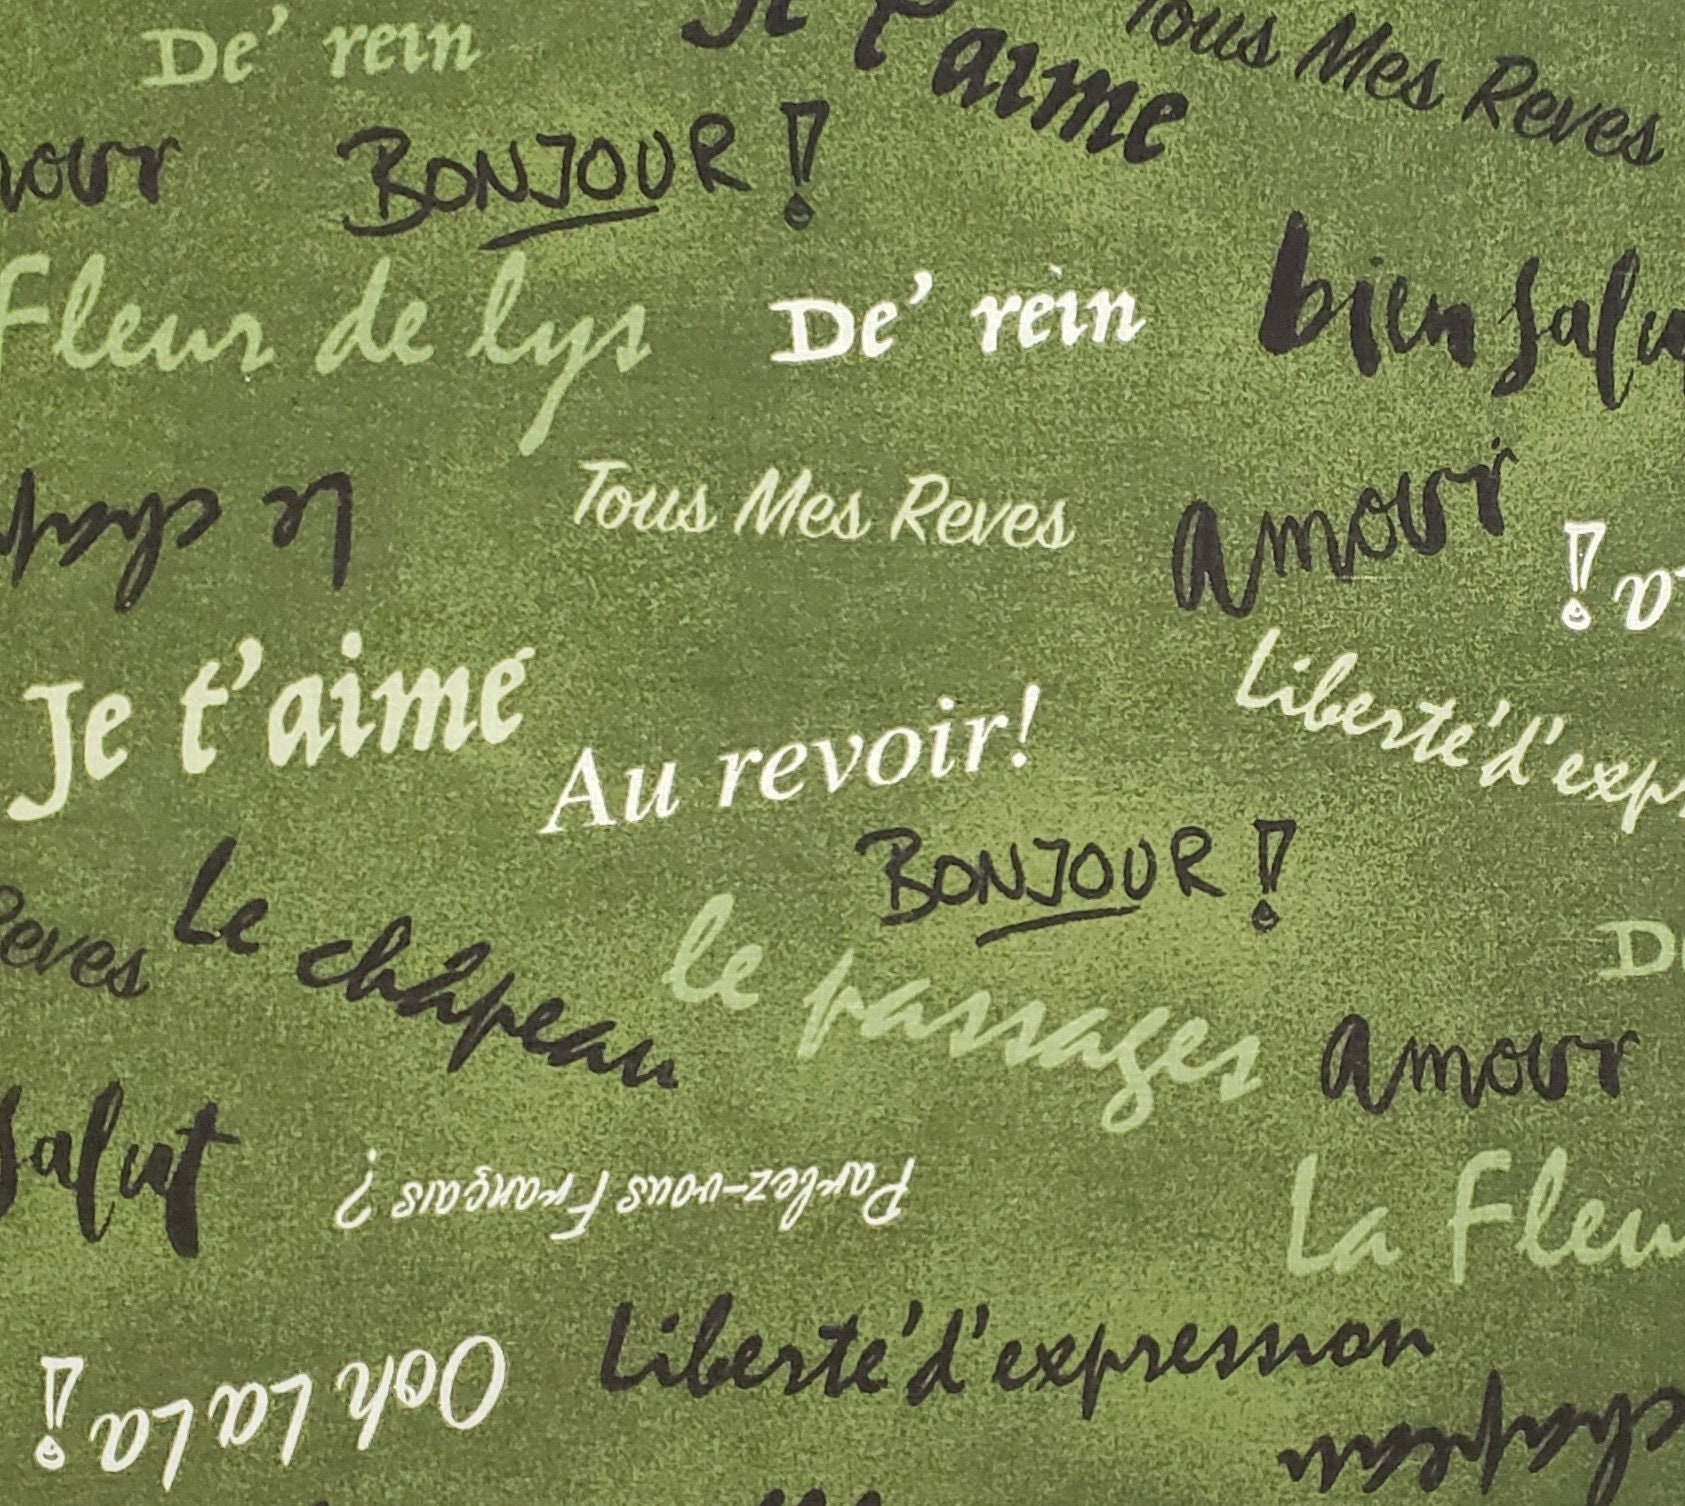 De' rein
Je t'aime
Tous Mes Reves
mour
BONJOUR!
Fleur de lys
De' rein
bien salu
Le chap
Tous Mes Reves
amour
La!
Je t'aime
Au revoir!
Liberté d'expr
BONJOUR!
Reves
Le châpeau
le passages
De
amour
salut
Parlez-vous Français?
La Fleur
Liberté d'expression
Ooh La La!
chapeau